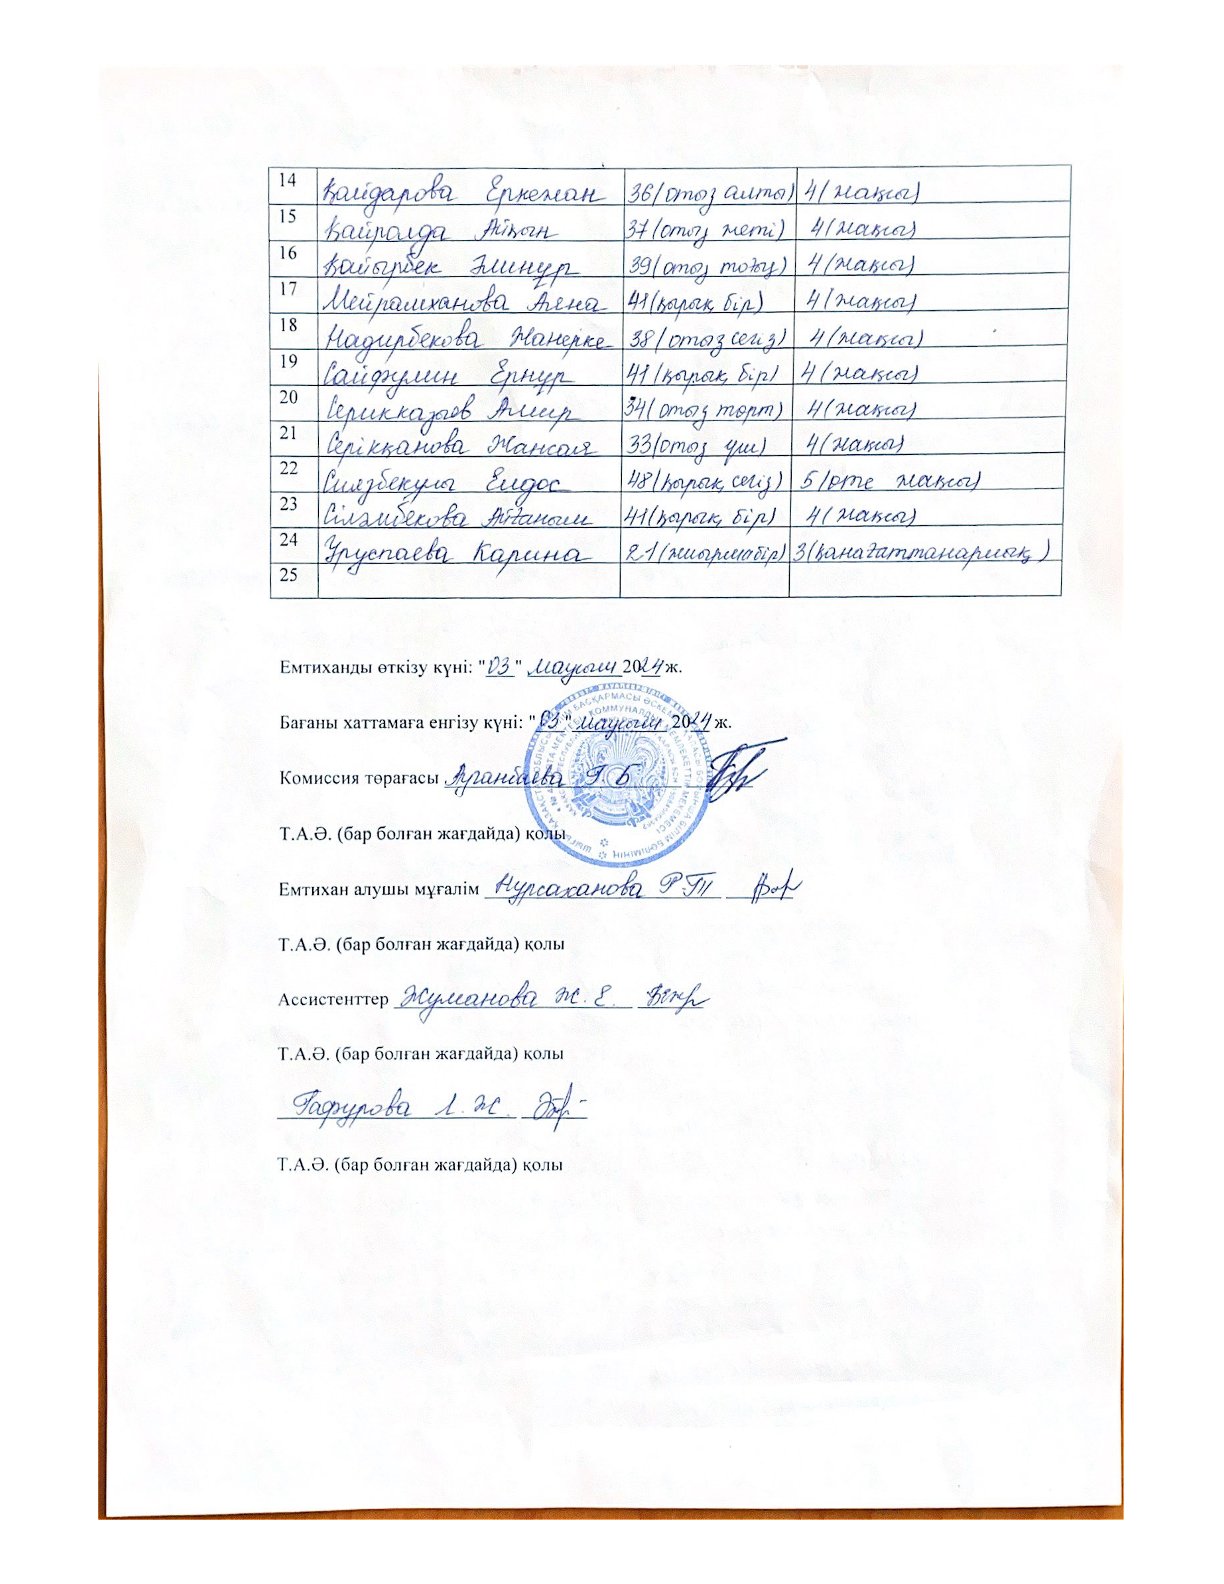 14 Қайдарова Еркежан 36 (отыз алты) 4 (жақсы)
15 Қайролда Айқын 37 (отыз жеті) 4 (жақсы)
16 Қайырбек Әлинұр 39 (отыз тоғыз) 4 (жақсы)
17 Мейрамханова Аяна 41 (қырық бір) 4 (жақсы)
18 Надирбекова Жанерке 38 (отыз сегіз) 4 (жақсы)
19 Сайфулин Ернұр 41 (қырық бір) 4 (жақсы)
20 Серикказыев Амир 34 (отыз төрт) 4 (жақсы)
21 Серікқанова Жансая 33 (отыз үш) 4 (жақсы)
22 Силязбекулы Елдос 48 (қырық сегіз) 5 (өте жақсы)
23 Сіләмбекова Айғаным 41 (қырық бір) 4 (жақсы)
24 Уруспаева Карина 21 (жиырма бір) 3 (қанағаттанарлық)
25
Емтиханды өткізу күні: "03" маусым 2024 ж.
Бағаны хаттамаға енгізу күні: "03" маусым 2024 ж.
Комиссия төрағасы Г. Б
Т.А.Ә. (бар болған жағдайда) қолы
Емтихан алушы мұғалім Нурсаханова Р Т
Т.А.Ә. (бар болған жағдайда) қолы
Ассистенттер Жуманова Ж. Е.
Т.А.Ә. (бар болған жағдайда) қолы
Гафурова Л. Ж.
Т.А.Ә. (бар болған жағдайда) қолы